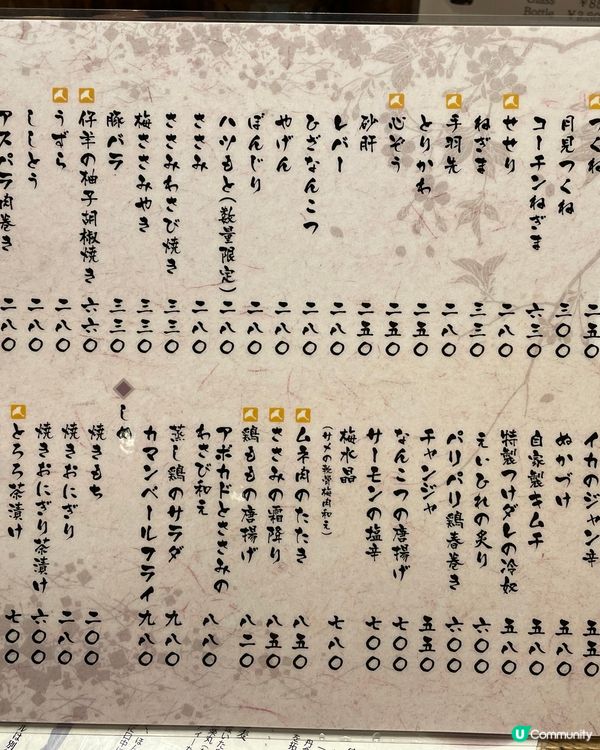 Glass
Bottle
つくね 二五〇
月見つくね 三〇〇
コーチンねぎま 六三〇
せせり 二八〇
ねぎま 三三〇
手羽先 二八〇
とりかわ 二五〇
心ぞう 二五〇
砂肝 二五〇
レバー 二八〇
ひざなんこつ 二八〇
やげん 二八〇
ぼんじり 二八〇
ハツもと(数量限定) 二八〇
ささみ 二八〇
ささみわさび焼き 三三〇
梅ささみやき 三三〇
豚バラ 三三〇
仔羊の柚子胡椒焼き 六六〇
うずら 二八〇
ししとう 二八〇
アスパラ肉巻き 二八〇
イカのジャン辛 五五〇
ぬかづけ 五五〇
自家製キムチ 五八〇
特製つけダレの冷奴 五八〇
えいひれの炙り 六〇〇
パリパリ鶏春巻き 六〇〇
チャンジャ 五五〇
なんこつの唐揚げ 七〇〇
サーモンの塩辛 七〇〇
梅水晶
(サメの軟骨梅肉和え) 七八〇
ムネ肉のたたき 八五〇
ささみの霜降り 八五〇
鶏ももの唐揚げ 八二〇
アボカドとささみの
わさび和え 八八〇
蒸し鶏のサラダ 九八〇
カマンベールフライ 九八〇
しめ
焼きもち 二〇〇
焼きおにぎり 二八〇
焼きおにぎり茶漬け 六〇〇
とろろ茶漬け 七〇〇
U Community